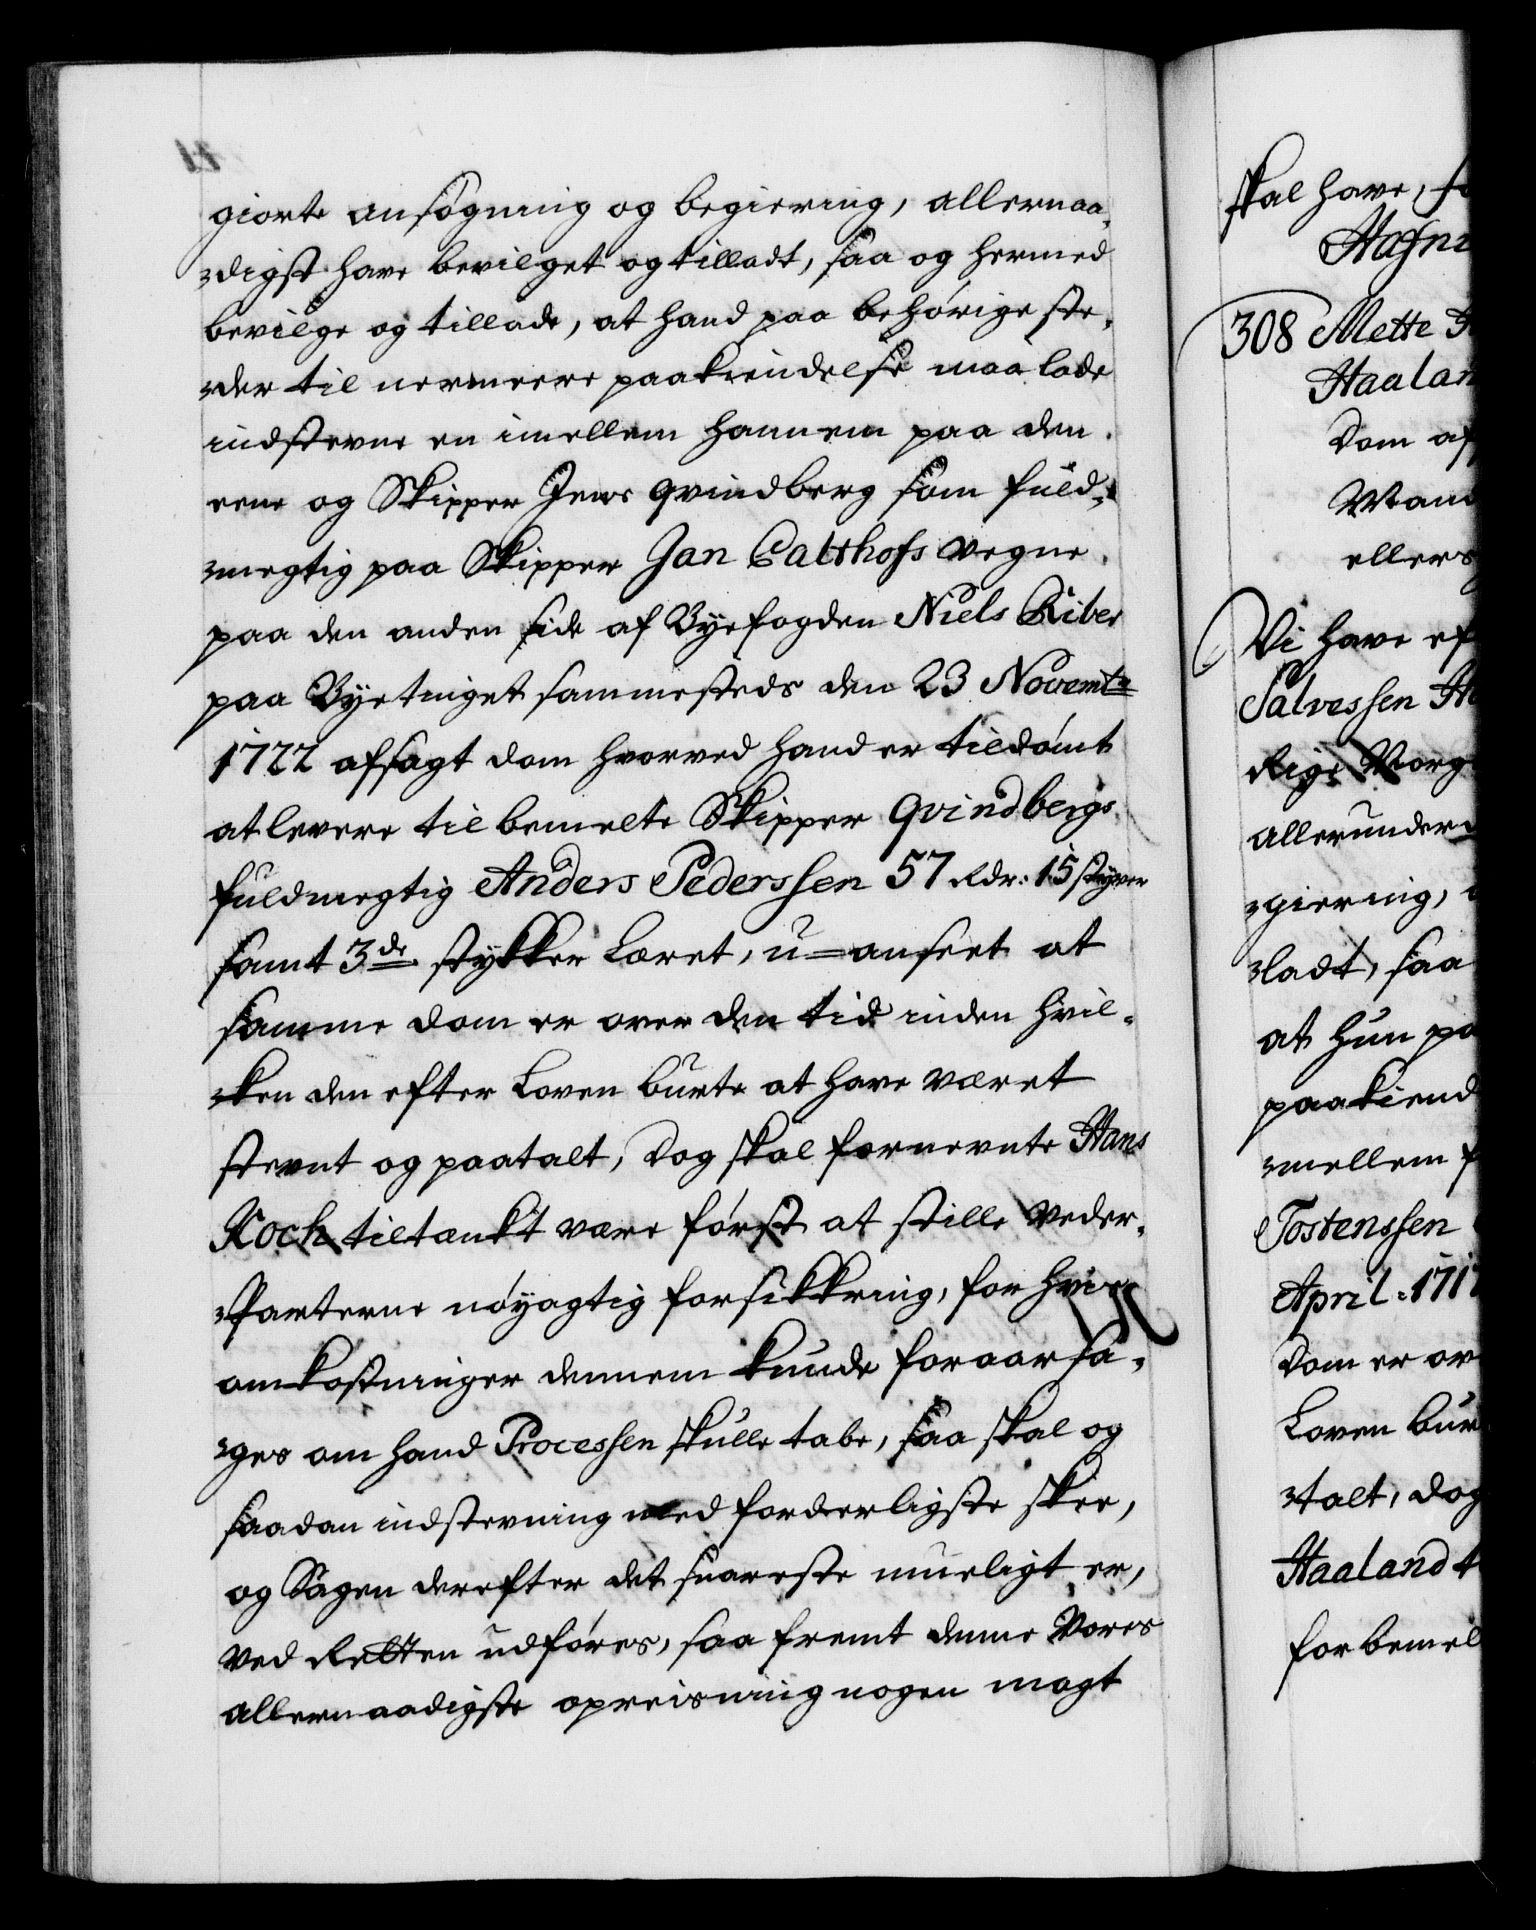 giorte ansøgning og begiering, allernaa-
-digst have bevilget og tilladt, saa og hermed
bevilge og tillade, at hand paa behørige ste-
-der til nermeere paakiendelse maa lade
indstevne en imellem hannem paa den
eene og Skipper Jens Qvindberg som fuld-
-megtig paa Skipper Jan Calthofs vegne
paa den anden side af Byefogden Niels Riber
paa Byetinget sammesteds den 23 Novembr
1722 afsagt dom hvorved hand er tildømt
at levere til bemelte Skipper Qvindbergs
fuldmegtig Anders Pederssen 57 Rdr: 15 styver
samt 3de stykker Læret, u-anseet at
samme dom er over den tid inden hvil-
-ken den efter Loven burte at have været
stevnt og paatalt, Dog skal fornevnte Hans
Koch tiltænkt være først at stille Veder-
-Parterne nøyagtig forsikkring, for hvis
omkostninger dennem kunde foraarsa-
-ges om hand Processen skulle tabe, saa skal og
saadan indstevning med forderligste skee,
og Sagen derefter det snareste mueligt er,
ved Retten udføres, saa fremt denne Vores
allernaadigste opreisning nogen magt
skal have,
308 Mette
Dom af
ellers
Vi have ef
Salvessen
Rige Norg
allerunder
-giering,
-ladt, saa
at hun pa
paakiend
-mellem
Tostenssen
April 1717
Dom er ov
Loven bur
-talt, dog
Haaland t
for bemel